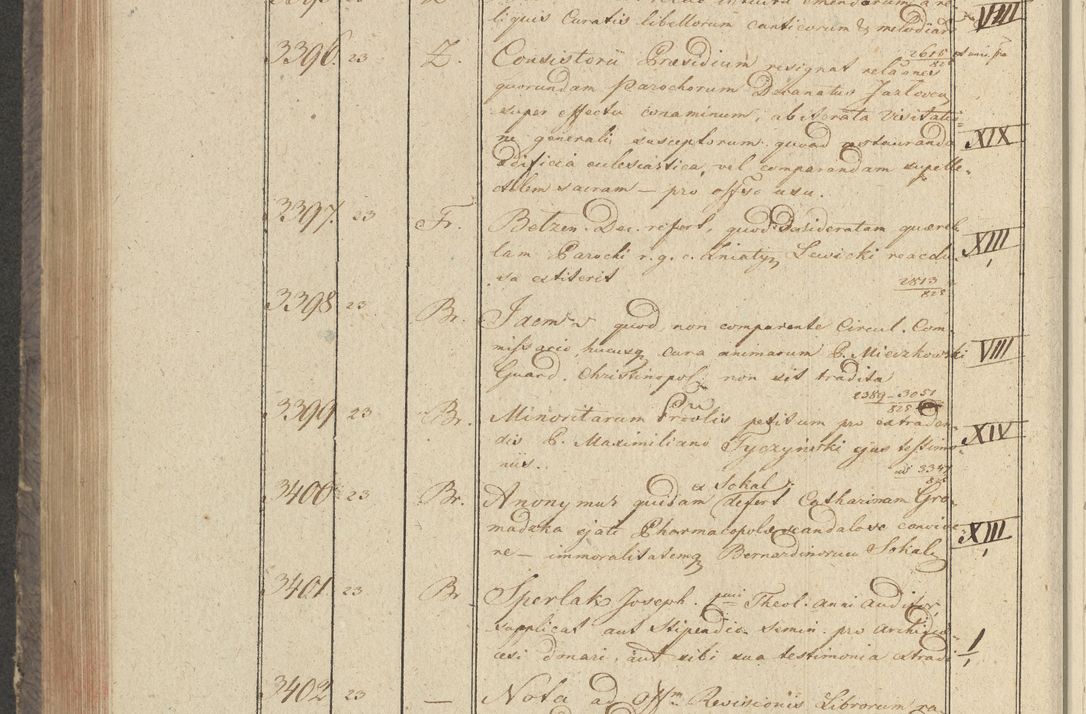 liquis Curatis libellorum canticorum & melodiar VIII
3396. 23 Z. Consistorii Præsidium resignat relaones 2615
quorundam Parochorum Decanatus Jazlovec
super effectu conaminum, ab iterata Visitatio=
ne generali susceptorum quoad restauranda XIX
ædificia eclesiastica, vel comparandam supelle=
ctilem sacram – pro offso usu.
3397. 23 Fr. Betzen. Dec. refert, quod desideratam quære
lam Parochi r. g. c. Uniatyn Lewicki XIII
sa extiterit 2813 825
3398 23 Br. Idem quod non comparente Circul. Com
missario hucusq cura animarum P. Mieczkowski VIII
Guard. Christinopol. non sit tradita
2389–3051 825
3399 23 Br. Minoritarum Prvlis petitum pro extraden
dis P. Maximiliano Tyczyński ejus testimo= XIV
niis. 3347 825
3400 23 Br. Anonymus quidam ex Sokal defert Catharinam Gro
madzka ejati Pharmacopolæ scandalose convive
re – immoralitatemq Bernardinorum Sokal XIII 1
3401 23 Br. Sperlak Joseph. Theol. anni auditor,
supplicat aut Stipendio Semin. pro archidio=
cesi donari, aut sibi sua testimonia extradi 1/1
3402 23 – Nota ad Offm Revisionis Librorum ra